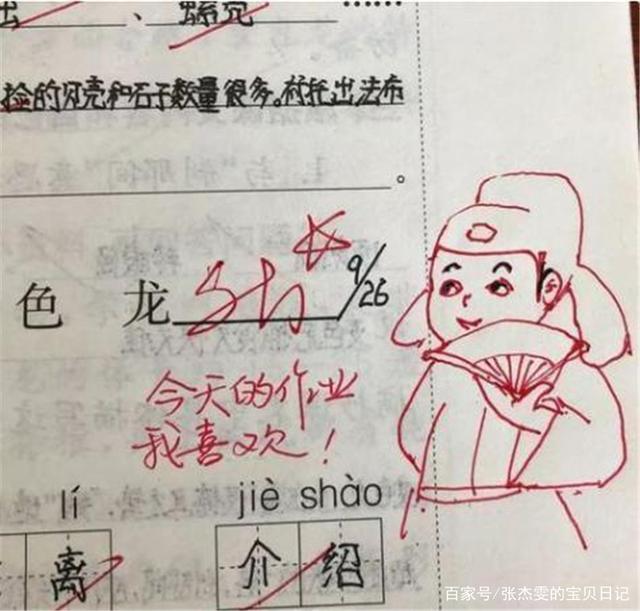 、 ……
捡的贝壳和石子数量很多。衬托出法布
。
色 龙 9/26
今天的作业
我喜欢！
lí jiè shào
离 介绍
百家号/张杰雯的宝贝日记